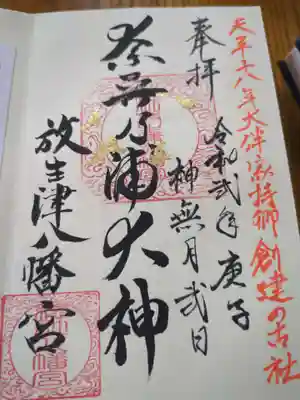 天平十八年大伴家持卿創建の古社
奉拝
令和弐年庚子
神無月弐日
奈呉乃浦大神
放生津八幡宮